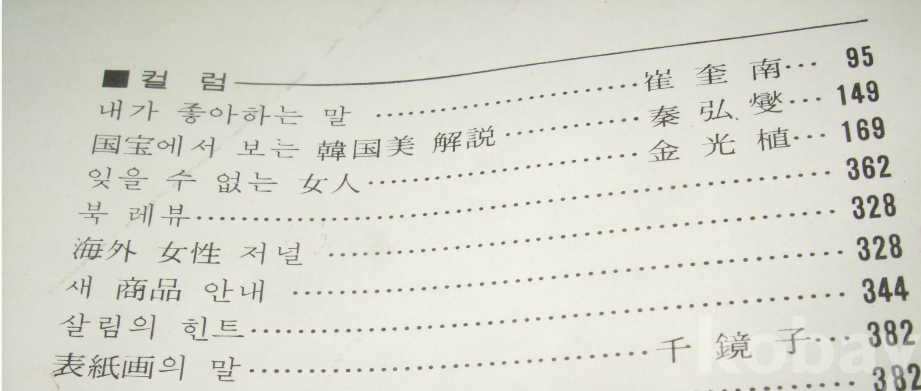 ■ 컬 럼
내가 좋아하는 말 ……………………… 崔 奎 南… 95
国宝에서 보는 韓国美 解説………… 秦 弘 燮… 149
잊을 수 없는 女人……………………… 金 光 植… 169
북 레뷰……………………………………………… 362
海外 女性 저널 …………………………………… 328
새 商品 안내 ……………………………………… 328
살림의 힌트………………………………………… 344
表紙画의 말 ………………………… 千 鏡 子… 382
……… 382
kobay